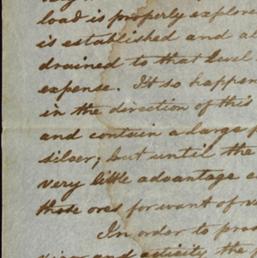 load is properly explore
is established and a
drained to that level
expense. It so happen
in the direction of this
and contain a large p
silver; but until the
very little advantage c
those ores for want of v
In order to proc
and activity the p